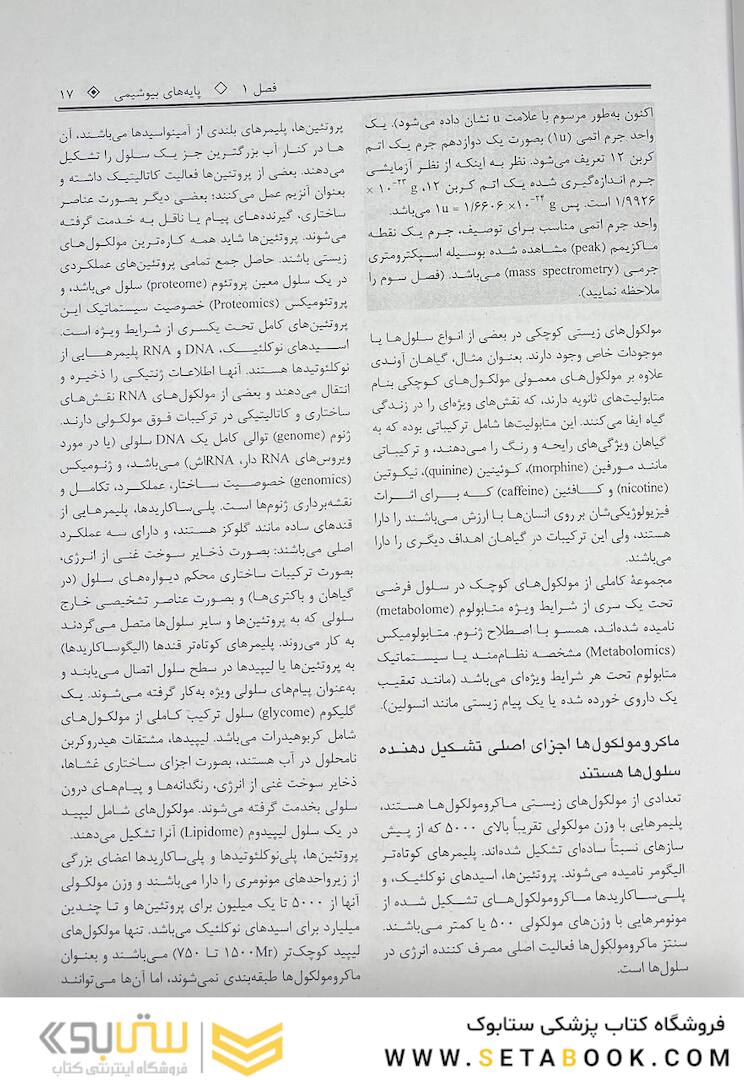 فصل ۱ ◇ پایه‌های بیوشیمی ◈ ۱۷
اکنون به‌طور مرسوم با علامت u نشان داده می‌شود). یک
واحد جرم اتمی (۱u) بصورت یک دوازدهم جرم یک اتم
کربن ۱۲ تعریف می‌شود. نظر به اینکه از نظر آزمایشی
جرم اندازه‌گیری شده یک اتم کربن ۱۲، ۱۰⁻²³ g ×
۱/۹۹۲۶ است. پس ۱u = ۱/۶۶۰۶ ×۱۰⁻²⁴ g می‌باشد.
واحد جرم اتمی مناسب برای توصیف، جرم یک نقطه
ماکزیمم (peak) مشاهده شده بوسیله اسپکترومتری
جرمی (mass spectrometry) می‌باشد. (فصل سوم را
ملاحظه نمایید).
مولکول‌های زیستی کوچکی در بعضی از انواع سلول‌ها یا
موجودات خاص وجود دارند. بعنوان مثال، گیاهان آوندی
علاوه بر مولکول‌های معمولی مولکول‌های کوچکی بنام
متابولیت‌های ثانویه دارند، که نقش‌های ویژه‌ای را در زندگی
گیاه ایفا می‌کنند. این متابولیت‌ها شامل ترکیباتی بوده که به
گیاهان ویژگی‌های رایحه و رنگ را می‌دهند، و ترکیباتی
مانند مورفین (morphine)، کوئینین (quinine)، نیکوتین
(nicotine) و کافئین (caffeine) که برای اثرات
فیزیولوژیکی‌شان بر روی انسان‌ها با ارزش می‌باشند را دارا
هستند، ولی این ترکیبات در گیاهان اهداف دیگری را دارا
می‌باشند.
مجموعهٔ کاملی از مولکول‌های کوچک در سلول فرضی
تحت یک سری از شرایط ویژه متابولوم (metabolome)
نامیده شده‌اند، همسو با اصطلاح ژنوم. متابولومیکس
(Metabolomics) مشخصه نظام‌مند یا سیستماتیک
متابولوم تحت هر شرایط ویژه‌ای می‌باشد (مانند تعقیب
یک داروی خورده شده یا یک پیام زیستی مانند انسولین).
ماکرومولکول‌ها اجزای اصلی تشکیل دهنده
سلول‌ها هستند
تعدادی از مولکول‌های زیستی ماکرومولکول‌ها هستند،
پلیمرهایی با وزن مولکولی تقریباً بالای ۵۰۰۰ که از پیش
سازهای نسبتاً ساده‌ای تشکیل شده‌اند. پلیمرهای کوتاه‌تر
الیگومر نامیده می‌شوند. پروتئین‌ها، اسیدهای نوکلئیک، و
پلی‌ساکاریدها ماکرومولکول‌های تشکیل شده از
مونومرهایی با وزن‌های مولکولی ۵۰۰ یا کمتر می‌باشند.
سنتز ماکرومولکول‌ها فعالیت اصلی مصرف کننده انرژی در
سلول‌ها است.
پروتئین‌ها، پلیمرهای بلندی از آمینواسیدها می‌باشند، آن
ها در کنار آب بزرگترین جز یک سلول را تشکیل
می‌دهند. بعضی از پروتئین‌ها فعالیت کاتالیتیک داشته و
بعنوان آنزیم عمل می‌کنند؛ بعضی دیگر بصورت عناصر
ساختاری، گیرنده‌های پیام یا ناقل به خدمت گرفته
می‌شوند. پروتئین‌ها شاید همه کاره‌ترین مولکول‌های
زیستی باشند. حاصل جمع تمامی پروتئین‌های عملکردی
در یک سلول معین پروتئوم (proteome) سلول می‌باشد، و
پروتئومیکس (Proteomics) خصوصیت سیستماتیک این
پروتئین‌های کامل تحت یکسری از شرایط ویژه است.
اسیدهای نوکلئیک، DNA و RNA پلیمرهایی از
نوکلئوتیدها هستند. آنها اطلاعات ژنتیکی را ذخیره و
انتقال می‌دهند و بعضی از مولکول‌های RNA نقش‌های
ساختاری و کاتالیتیکی در ترکیبات فوق مولکولی دارند.
ژنوم (genome) توالی کامل یک DNA سلولی (یا در مورد
ویروس‌های RNA دار، RNAاش) می‌باشد، و ژنومیکس
(genomics) خصوصیت ساختار، عملکرد، تکامل و
نقشه‌برداری ژنوم‌ها است. پلی‌ساکاریدها، پلیمرهایی از
قندهای ساده مانند گلوکز هستند، و دارای سه عملکرد
اصلی می‌باشند: بصورت ذخایر سوخت غنی از انرژی،
بصورت ترکیبات ساختاری محکم دیواره‌های سلول (در
گیاهان و باکتری‌ها) و بصورت عناصر تشخیصی خارج
سلولی که به پروتئین‌ها و سایر سلول‌ها متصل می‌گردند
به کار می‌روند. پلیمرهای کوتاه‌تر قندها (الیگوساکاریدها)
به پروتئین‌ها یا لیپیدها در سطح سلول اتصال می‌یابند و
به‌عنوان پیام‌های سلولی ویژه به‌کار گرفته می‌شوند. یک
گلیکوم (glycome) سلول ترکیب کاملی از مولکول‌های
شامل کربوهیدرات می‌باشد. لیپیدها، مشتقات هیدروکربن
نامحلول در آب هستند، بصورت اجزای ساختاری غشاها،
ذخایر سوخت غنی از انرژی، رنگدانه‌ها و پیام‌های درون
سلولی بخدمت گرفته می‌شوند. مولکول‌های شامل لیپید
در یک سلول لیپیدوم (Lipidome) آنرا تشکیل می‌دهند.
پروتئین‌ها، پلی‌نوکلئوتیدها و پلی‌ساکاریدها اعضای بزرگی
از زیرواحدهای مونومری را دارا می‌باشند و وزن مولکولی
آنها از ۵۰۰۰ تا یک میلیون برای پروتئین‌ها و تا چندین
میلیارد برای اسیدهای نوکلئیک می‌باشد. تنها مولکول‌های
لیپید کوچک‌تر (۱۵۰۰Mr تا ۷۵۰) می‌باشند و بعنوان
ماکرومولکول‌ها طبقه‌بندی نمی‌شوند، اما آن‌ها می‌توانند
فروشگاه کتاب پزشکی ستابوک
WWW.SETABOOK.COM
ستابوک
فروشگاه اینترنتی کتاب